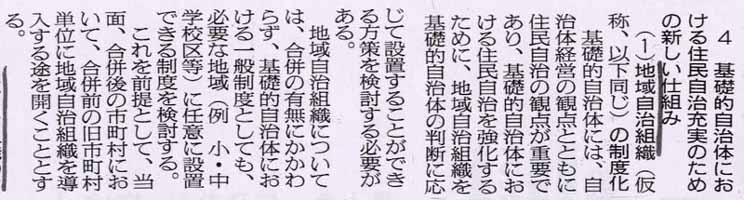 ４　基礎的自治体にお
ける住民自治充実のため
の新しい仕組み
（１）地域自治組織（仮
称、以下同じ）の制度化
　基礎的自治体には、自
治体経営の観点とともに
住民自治の観点が重要で
あり、基礎的自治体にお
ける住民自治を強化する
ために、地域自治組織を
基礎的自治体の判断に応
じて設置することができ
る方策を検討する必要が
ある。
　地域自治組織について
は、合併の有無にかかわ
らず、基礎的自治体にお
ける一般制度としても、
必要な地域（例　小・中
学校区等）に任意に設置
できる制度を検討する。
　これを前提として、当
面、合併後の市町村にお
いて、合併前の旧市町村
単位に地域自治組織を導
入する途を開くこととす
る。